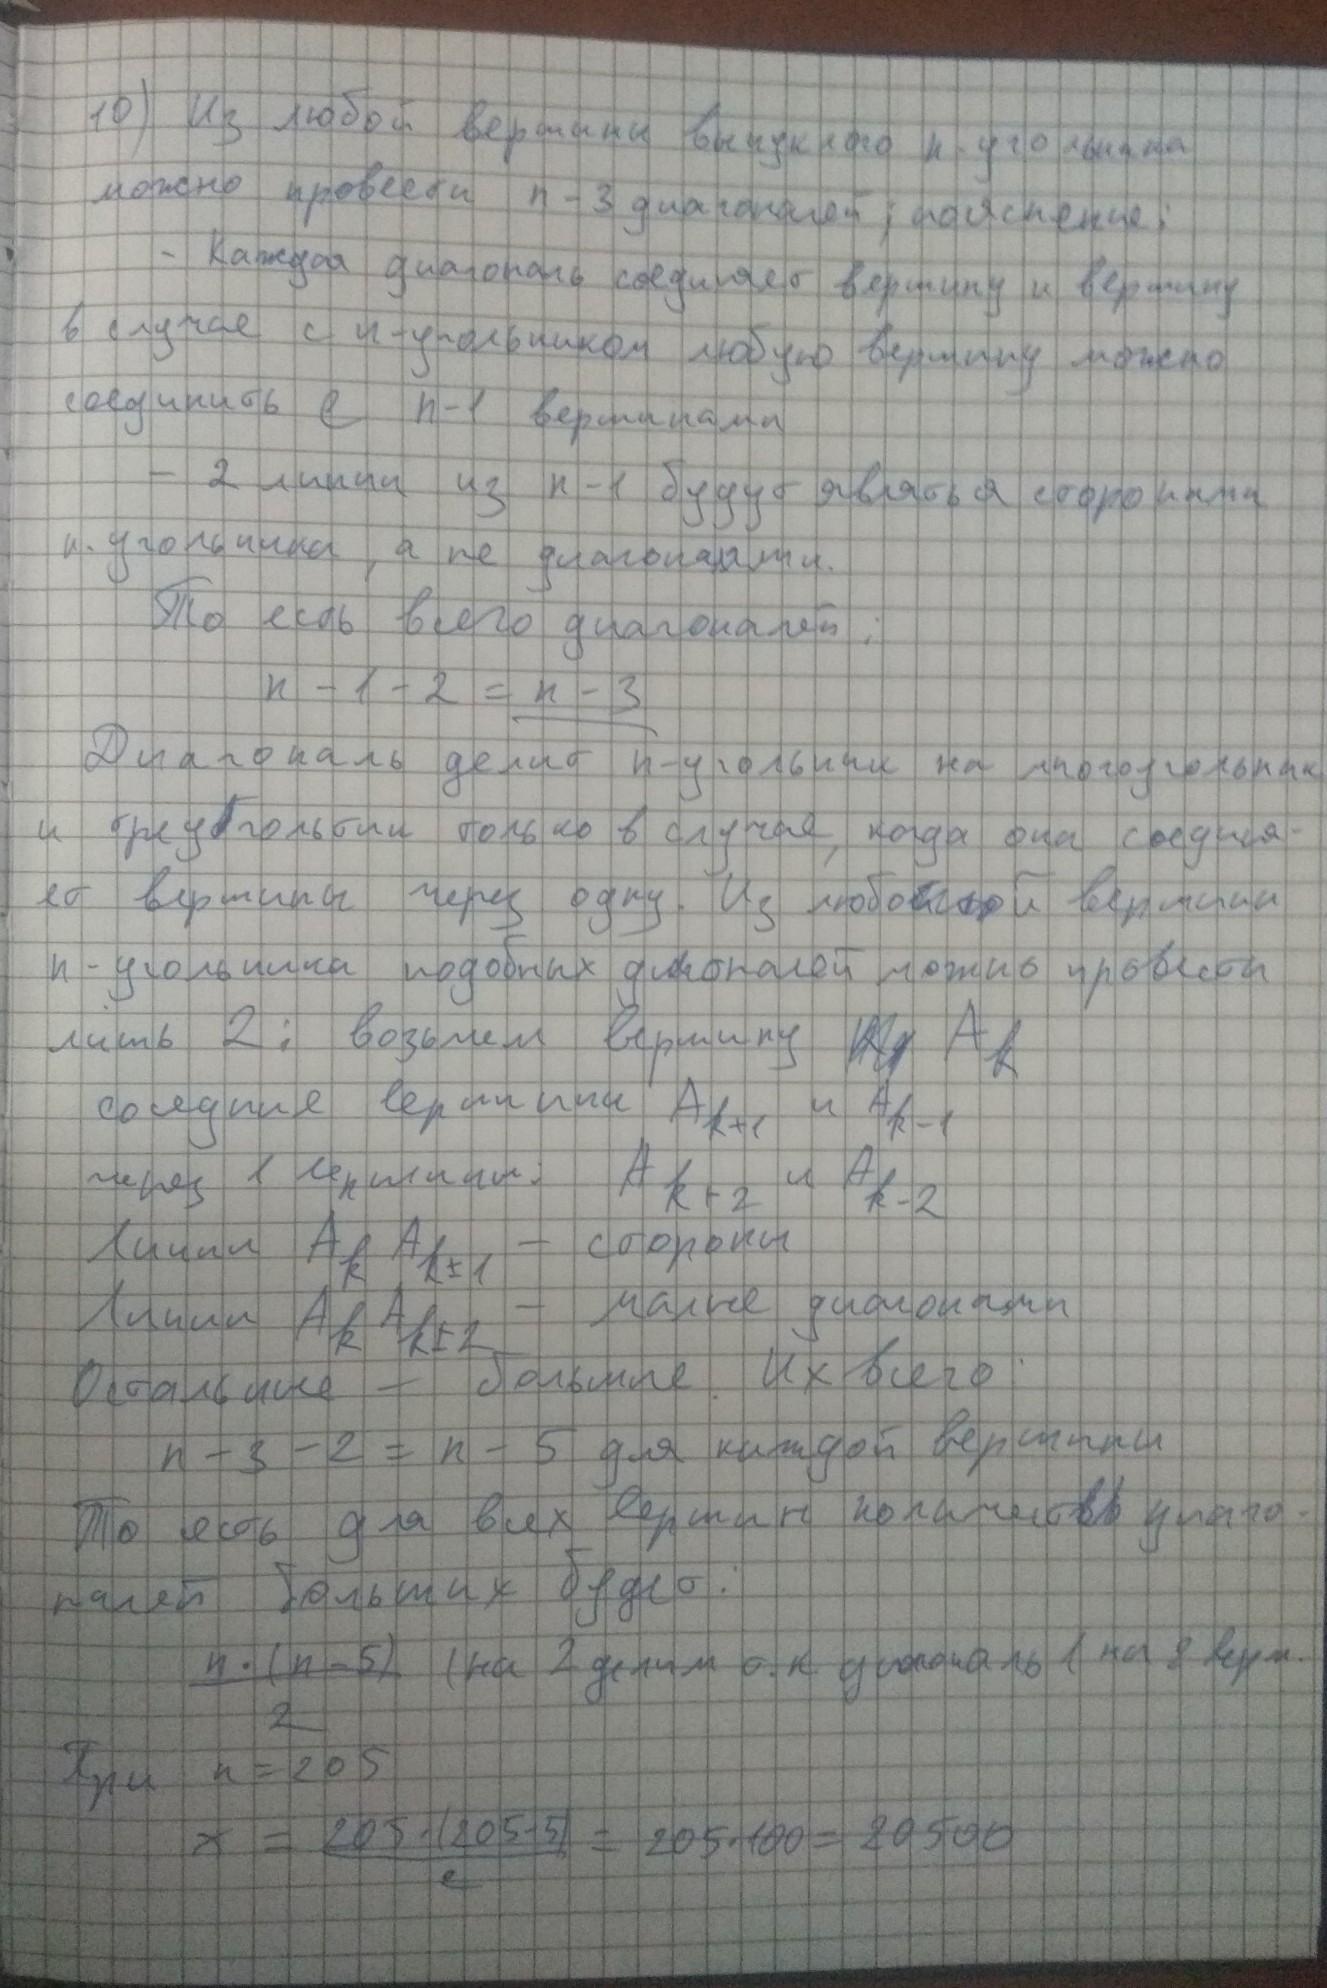 10) Из любой вершины выпуклого n-угольника
можно провести n-3 диагоналей; пояснение:
- Каждая диагональ соединяет вершину и вершину
в случае с n-угольником любую вершину можно
соединить с n-1 вершинами
- 2 линии из n-1 будут являться сторонами
n-угольника, а не диагоналями.
То есть всего диагоналей:
n-1-2 = n-3
Диагональ делит n-угольник на многоугольник
и треугольник только в случае, когда она соединя-
ет вершины через одну. Из любой вершины
n-угольника подобных диагоналей можно провести
лишь 2: возьмем вершину A_k
соседние вершины A_{k+1} и A_{k-1}
через 1 вершины: A_{k+2} и A_{k-2}
Линии A_k A_{k±1} - стороны
Линии A_k A_{k±2} - малые диагонали
Остальные - большие. Их всего:
n-3-2 = n-5 для каждой вершины
То есть для всех вершин количество диаго-
налей больших будет:
n·(n-5)/2 (на 2 делим т.к диагональ 1 на 2 верш.
При n=205
x = 205·(205-5)/2 = 205·100 = 20500